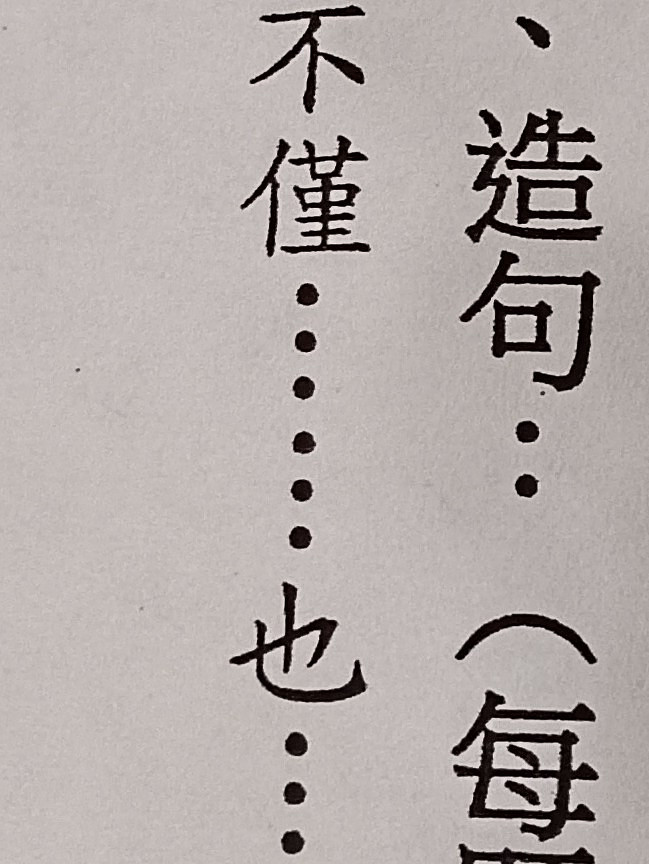 、造句：（每
不僅……也…